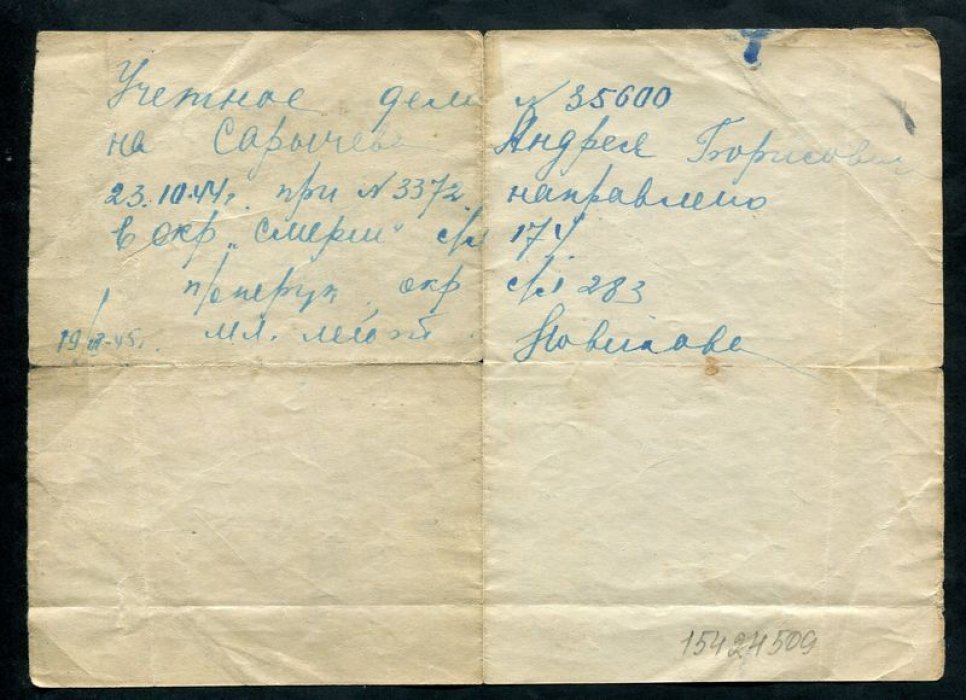 Учетное дело № 35600
на Сарычева Андрея Борисович
23.10.44г. при № 3372 направлено
в окр „Смерш“ с/л 174
окр с/л 283
19 45г. мл. лейт Новикова
15424509